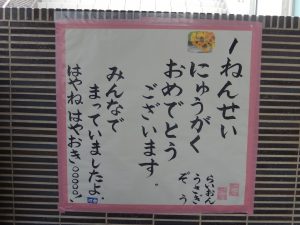 1ねんせい
にゅうがく
おめでとう
ございます。
みんなで
まっていましたよ。
はやね はやおき○○○○○。
らいおん
うさぎ
ぞう